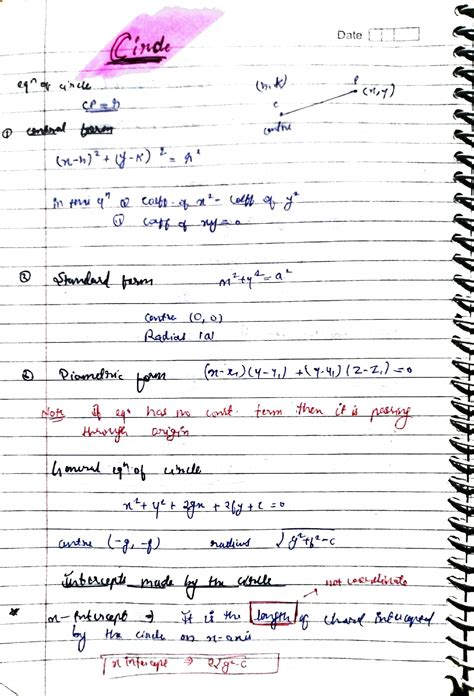 Date
Circle
eqⁿ of circle
CP = r
(h, K) P (x, y)
C
centre
① central form
(x-h)² + (y-K)² = r²
in this eqⁿ ① coeff. of x² = coeff of y²
② coeff of xy = 0
② Standard form x² + y² = a²
centre (0, 0)
Radius |a|
③ Diametric form (x-x₁)(y-y₁) + (y-y₁)(z-z₁) = 0
Note If eqⁿ has no const. term then it is passing
through origin
General eqⁿ of circle
x² + y² + 2gx + 2fy + c = 0
centre (-g, -f) radius √g²+f²-c
Intercepts made by the circle
not coordinate
* x-Intercept → It is the length of chord intercepted
by the circle on x-axis
x intercept → 2√g²-c